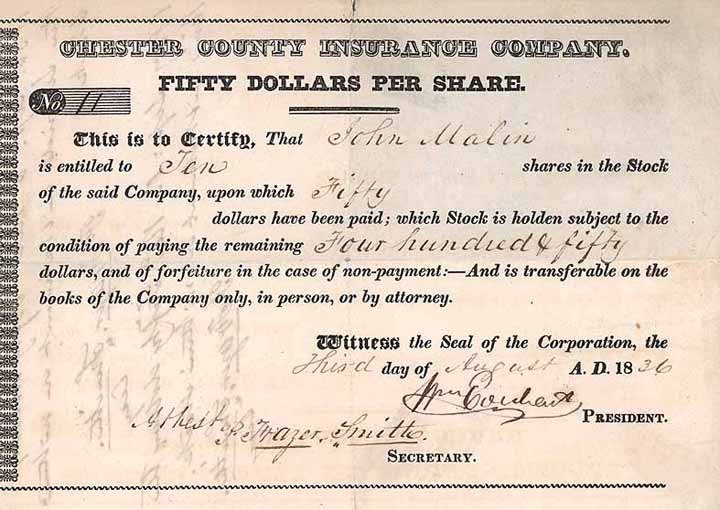 CHESTER COUNTY INSURANCE COMPANY.
FIFTY DOLLARS PER SHARE.
No 11
This is to Certify, That John Malin
is entitled to Ten shares in the Stock
of the said Company, upon which Fifty
dollars have been paid; which Stock is holden subject to the
condition of paying the remaining Four hundred & fifty
dollars, and of forfeiture in the case of non-payment:—And is transferable on the
books of the Company only, in person, or by attorney.
Witness the Seal of the Corporation, the
Third day of August A. D. 1836
Wm Everhart PRESIDENT.
Attest P. Frazer Smith.
SECRETARY.